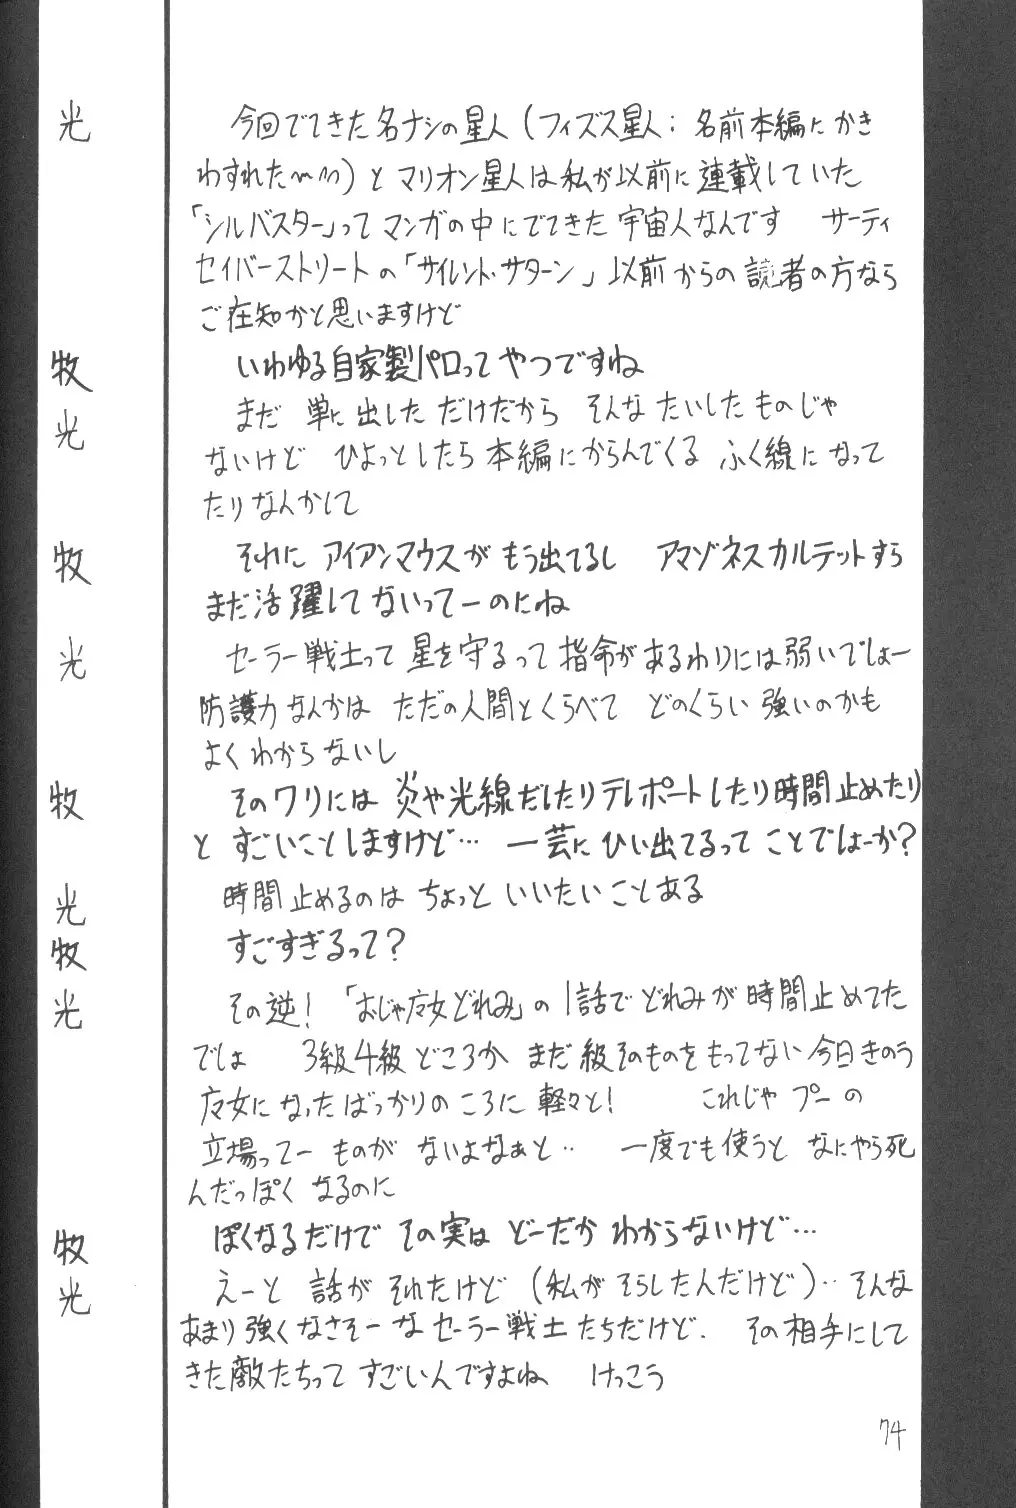 光 今回でてきた名ナシの星人(フィズス星人:名前本編にかき
わすれた〜〜)とマリオン星人は私が以前に連載していた
「シルバスター」ってマンガの中にでてきた宇宙人なんです サーティ
セイバーストリートの「サイレント・サターン」以前からの読者の方なら
ご在知かと思いますけど
牧 いわゆる自家製パロってやつですね
光 まだ単に出しただけだから そんなたいしたものじゃ
ないけど ひょっとしたら本編にからんでくるふく線になって
たりなんかして
牧 それに アイアンマウスがもう出てるし アマゾネスカルテットすら
まだ活躍してないってーのにね
光 セーラー戦士って星を守るって指命があるわりには弱いでしょー
防護力なんかは ただの人間とくらべて どのくらい強いのかも
よくわからないし
牧 そのワリには炎や光線だしたりテレポートしたり時間止めたり
と すごいことしますけど… 一芸にひい出てるってことでしょーか?
光 時間止めるのはちょっといいたいことある
牧 すごすぎるって?
光 その逆!「おじゃ魔女どれみ」の1話でどれみが時間止めてた
でしょ 3級4級どころか まだ級そのものをもってない今日きのう
魔女になったばっかりのころに軽々と! これじゃ プーの
立場ってーものがないよなぁと‥ 一度でも使うと なにやら死
んだっぽくなるのに
牧 ぽくなるだけで その実は どーだかわからないけど…
光 えーと 話がそれたけど(私がそらしたんだけど)‥そんな
あまり強くなさそーなセーラー戦士たちだけど. その相手にして
きた敵たちってすごいんですよね けっこう
74